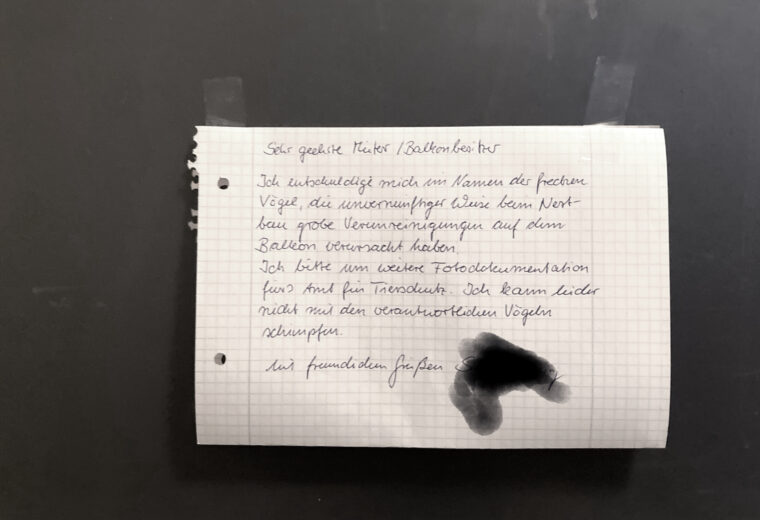 Sehr geehrte Mieter / Balkonbesitzer
Ich entschuldige mich im Namen der frechen
Vögel, die unvernünftiger Weise beim Nest-
bau grobe Verunreinigungen auf dem
Balkon verursacht haben.
Ich bitte um weitere Fotodokumentation
fürs Amt für Tierschutz. Ich kann leider
nicht mit den verantwortlichen Vögeln
schimpfen.
Mit freundlichen Grüßen